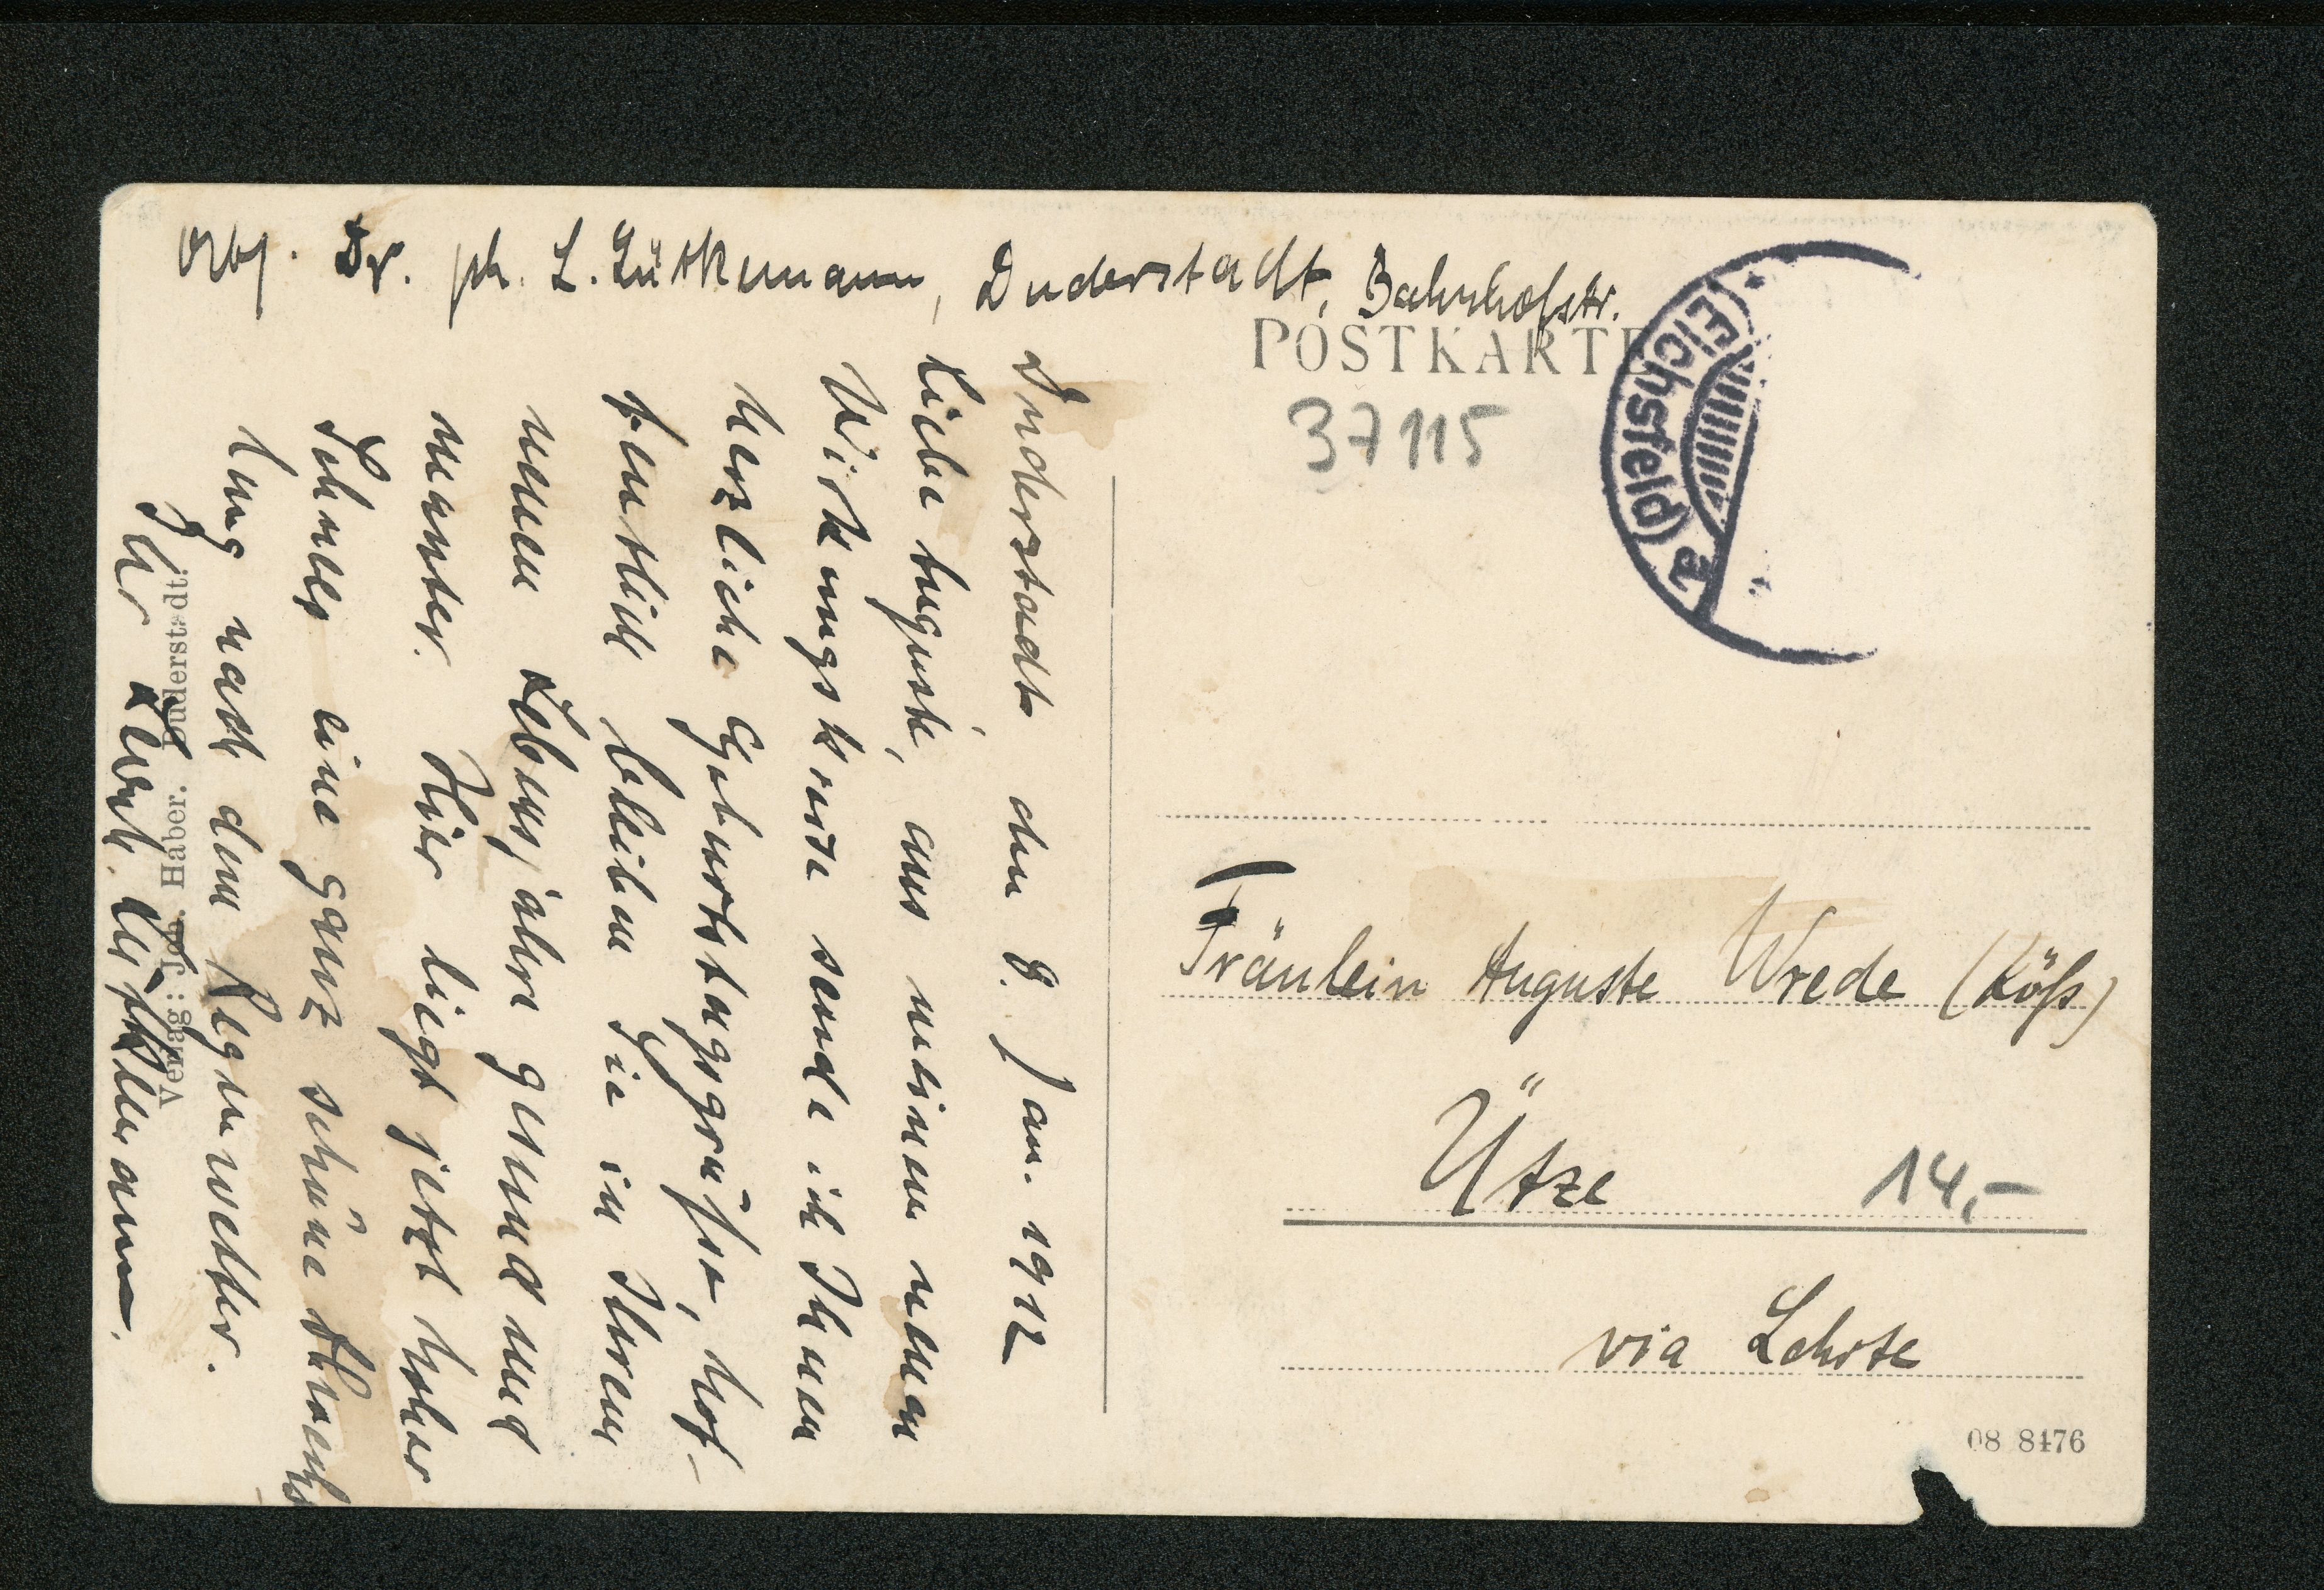 Abs. Dr. ph. L. Lütkemann, Duderstadt, Bahnhofstr.
POSTKARTE
37115
(Eichsfeld)
a
Duderstadt den 8. Jan. 1912
Liebe Auguste, aus meinem neuen
Wirkungskreise sende ich Ihnen
herzliche Geburtstagsgrüsse, hof-
fentlich bleiben Sie in Ihrem
neuen Lebensjahre gesund und
munter. Hier liegt jetzt hoher
Schnee eine ganz schöne
lung nach dem Regenwetter.
Ihr Lütkemann.
Verlag: Joh. Haber. Duderstadt.
Fräulein Auguste Wrede
Ütze
14,-
via Lehrte
08 8476